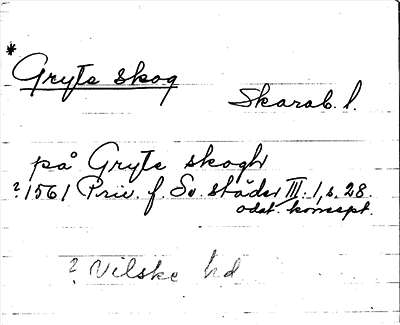 * Gryte skog
Skarab. l.
på Gryte skogh
? 1561 Priv. f. Sv. städer III: 1, s. 28.
odat. koncept.
? Vilske hd